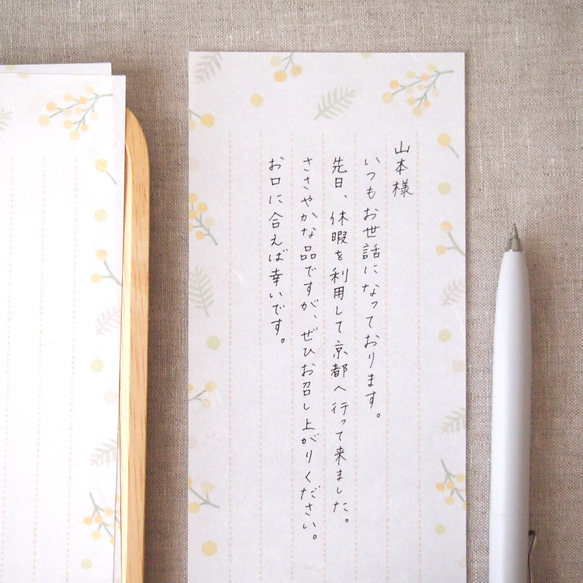 山本様
いつもお世話になっております。
先日、休暇を利用して京都へ行って来ました。
ささやかな品ですが、ぜひお召し上がりください。
お口に合えば幸いです。